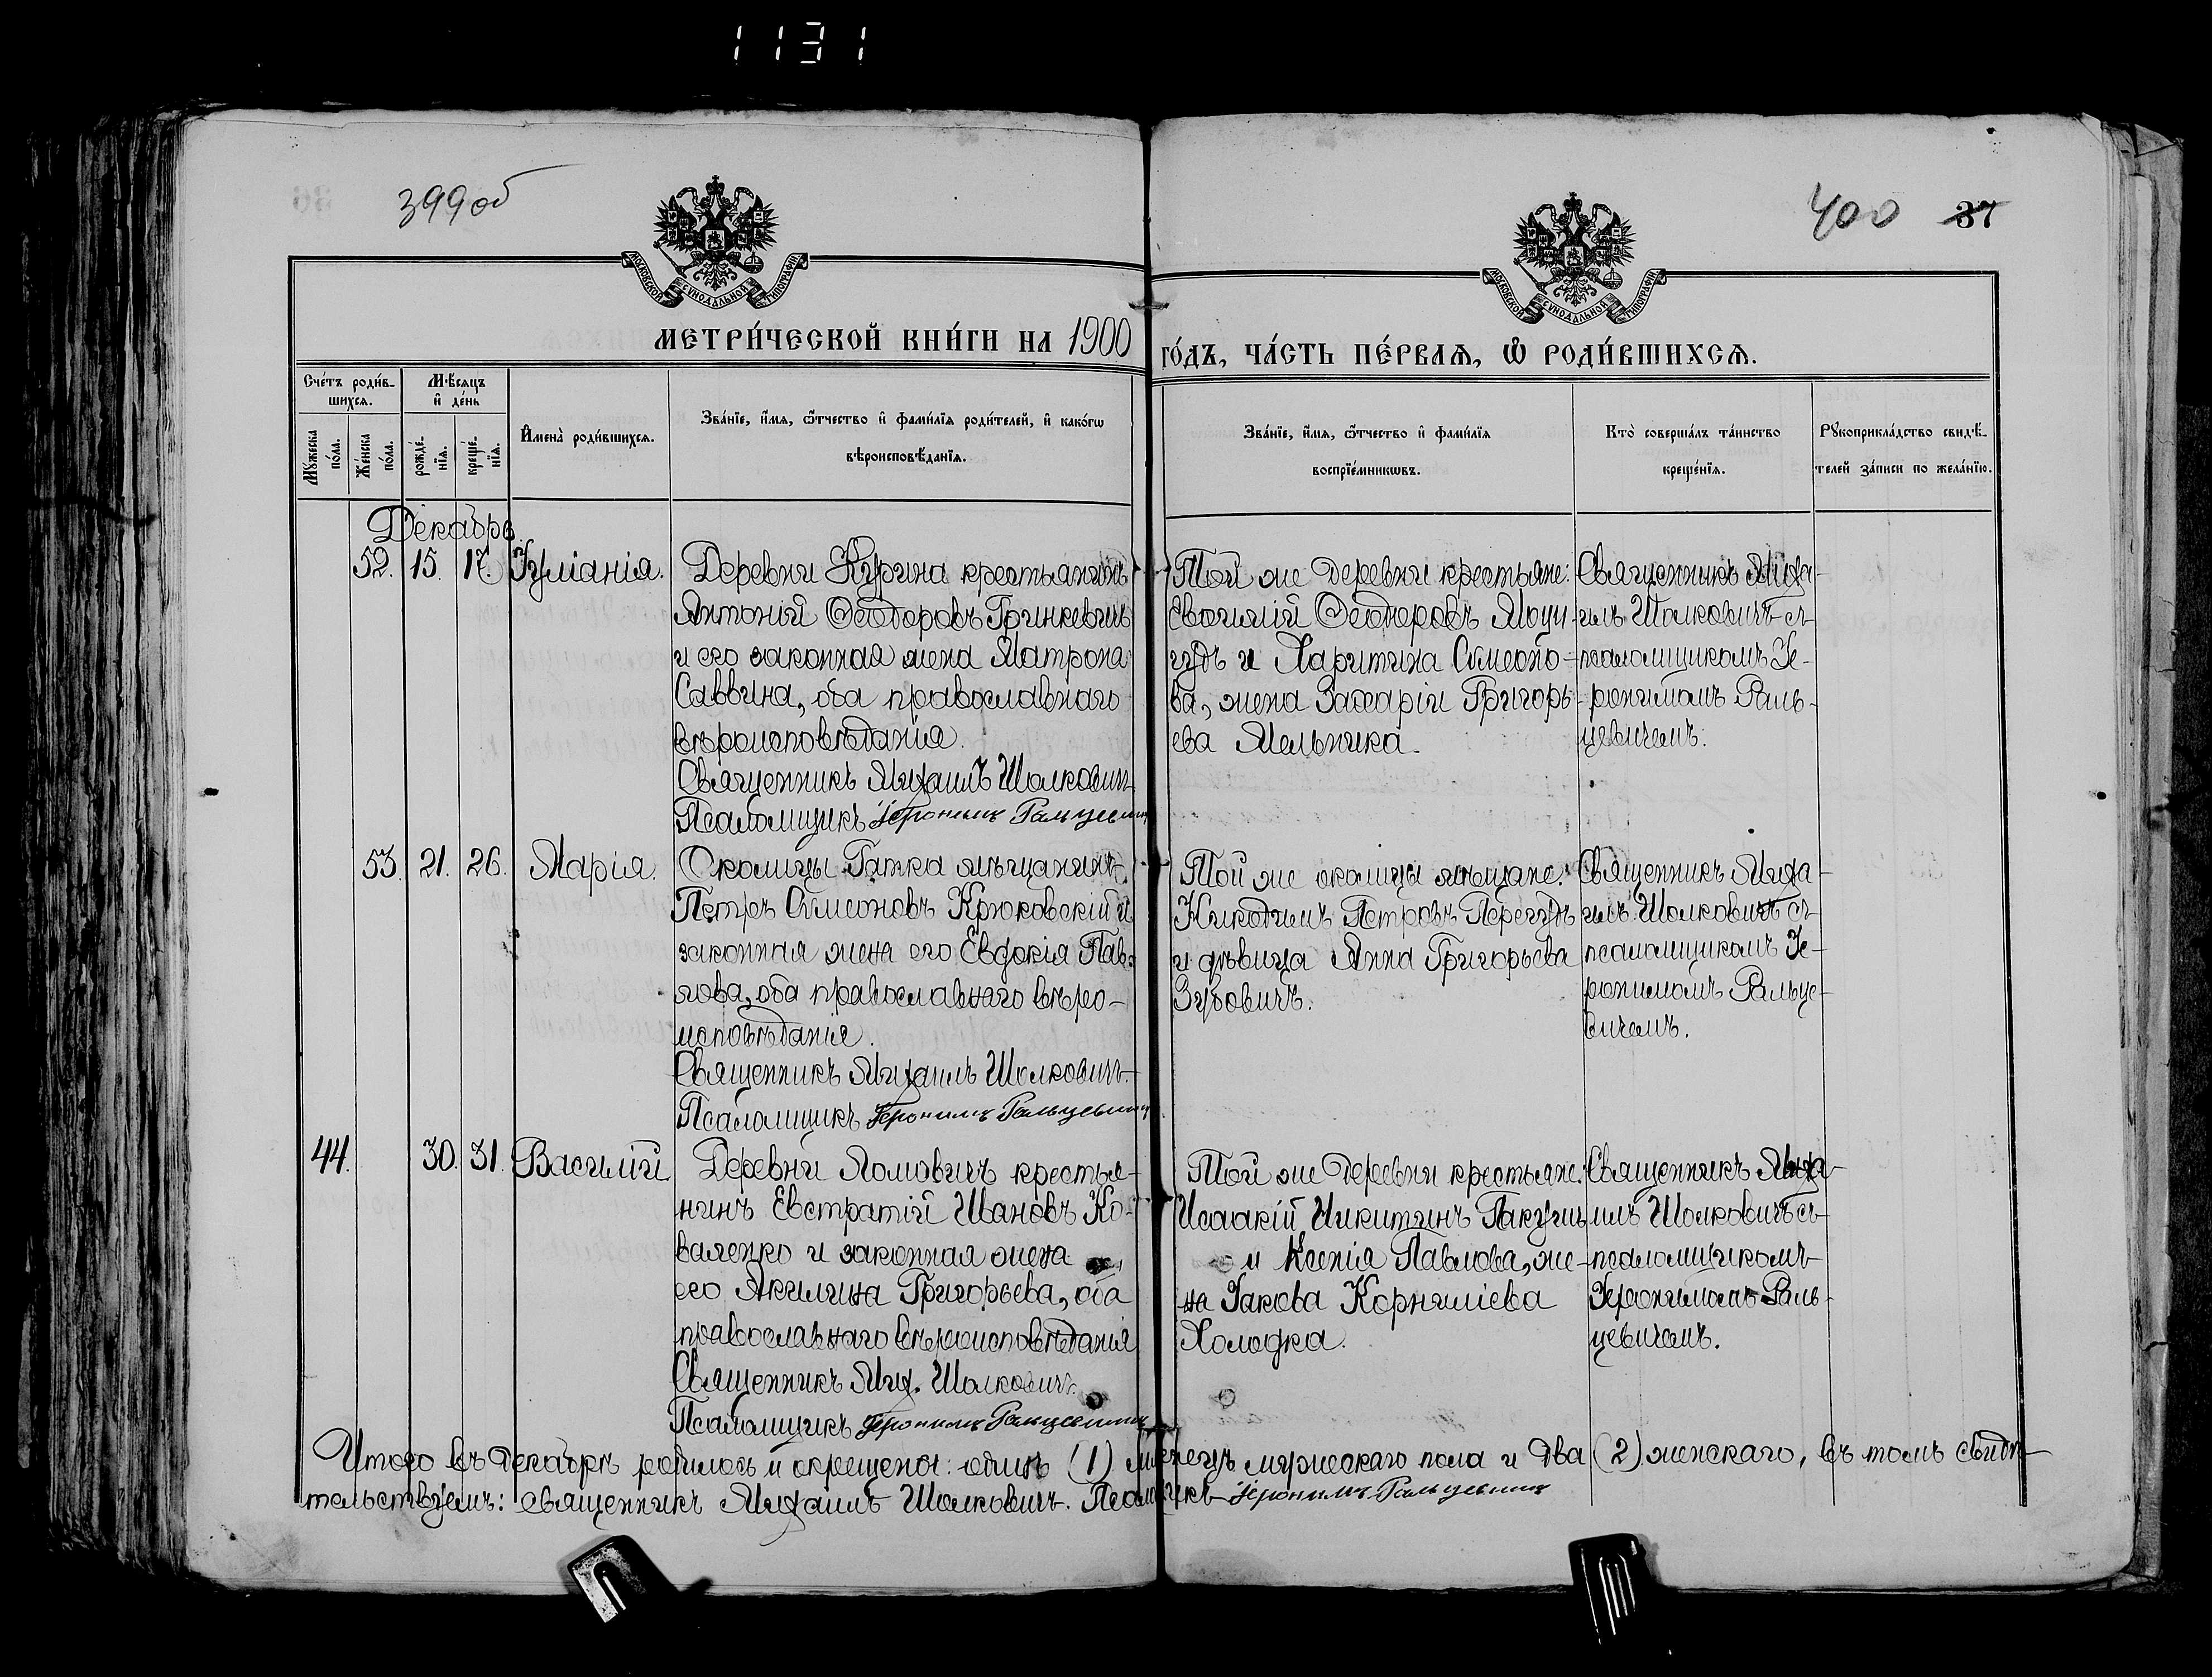 1131
399 об
400 37
МОСКОВСКОЙ СУНОДАЛЬНОЙ ТИПОГРАФІИ
МОСКОВСКОЙ СУНОДАЛЬНОЙ ТИПОГРАФІИ
МЕТРИ́ЧЕСКОЙ КНИ́ГИ НА 1900
ГО́ДЪ, ЧА́СТЬ ПЕ́РВАѦ, Ѽ РОДИ́ВШИХСѦ.
Сче́тъ роди́в-
шихсѧ.
Мꙋжеска по́ла.
Же́нска по́ла.
Мѣ́сѧцъ
и҆ де́нь
рожде́-
нїѧ.
креще́-
нїѧ.
И҆мена̀ роди́вшихсѧ.
Зва́нїе, и҆́мѧ, ѻ҆́тчество и҆ фами́лїѧ роди́телей, и҆ како́гѡ
вѣроисповѣ́данїѧ.
Зва́нїе, и҆́мѧ, ѻ҆́тчество и҆ фами́лїѧ
воспрїе́мникѡвъ.
Кто̀ соверша́лъ та́инство
креще́нїѧ.
Рꙋкоприкла́дство свидѣ́-
телей за́писи по жела́нїю.
Декабрь.
52. 15. 17. Іуліанія.
Деревни Курина крестьянинъ
Антоній Ѳеодоровъ Гринкевичъ
и его законная жена Матрона
Саввина, оба православнаго
вѣроисповѣданія.
Священникъ Михаилъ Шолковичъ
Псаломщикъ Іеронимъ Гальцевичъ
Той же деревни крестьяне:
Евѳимій Ѳеодоровъ
и Харитина Симеоно-
ва, жена Захаріи Григорь-
ева Мельника.
Священникъ Миха-
илъ Шолковичъ съ
псаломщикомъ Іе-
ронимомъ Галь-
цевичемъ.
53. 21. 26. Марія.
Околицы Гатка мѣщанинъ
Петръ Симеоновъ Крюковскій и
законная жена его Евдокія Пав-
лова, оба православнаго вѣро-
исповѣданія.
Священникъ Михаилъ Шолковичъ.
Псаломщикъ Іеронимъ Гальцевичъ
Той же околицы мѣщане:
Никодимъ Петровъ Перегудъ
и дѣвица Анна Григорьева
Зубовичъ.
Священникъ Миха-
илъ Шолковичъ съ
псаломщикомъ Іе-
ронимомъ Гальце-
вичемъ.
44. 30. 31. Василій
Деревни Ломовичъ крестья-
нинъ Евстратій Ивановъ Ко-
валенко и законная жена
его Акилина Григорьева, оба
православнаго вѣроисповѣданія
Священникъ Мих. Шолковичъ.
Псаломщикъ Іеронимъ Гальцевичъ
Той же деревни крестьяне:
Исаакій Никитинъ
и Ксенія Павлова, же-
на Іакова Корниліева
Холодка.
Священникъ Миха-
илъ Шолковичъ съ
псаломщикомъ
Іеронимомъ Галь-
цевичемъ.
Итого въ Декабрѣ родилось и окрещены: одинъ (1) младенецъ мужескаго пола и два (2) женскаго, въ томъ свидѣ-
тельствуемъ: священникъ Михаилъ Шолковичъ. Псаломщикъ Іеронимъ Гальцевичъ